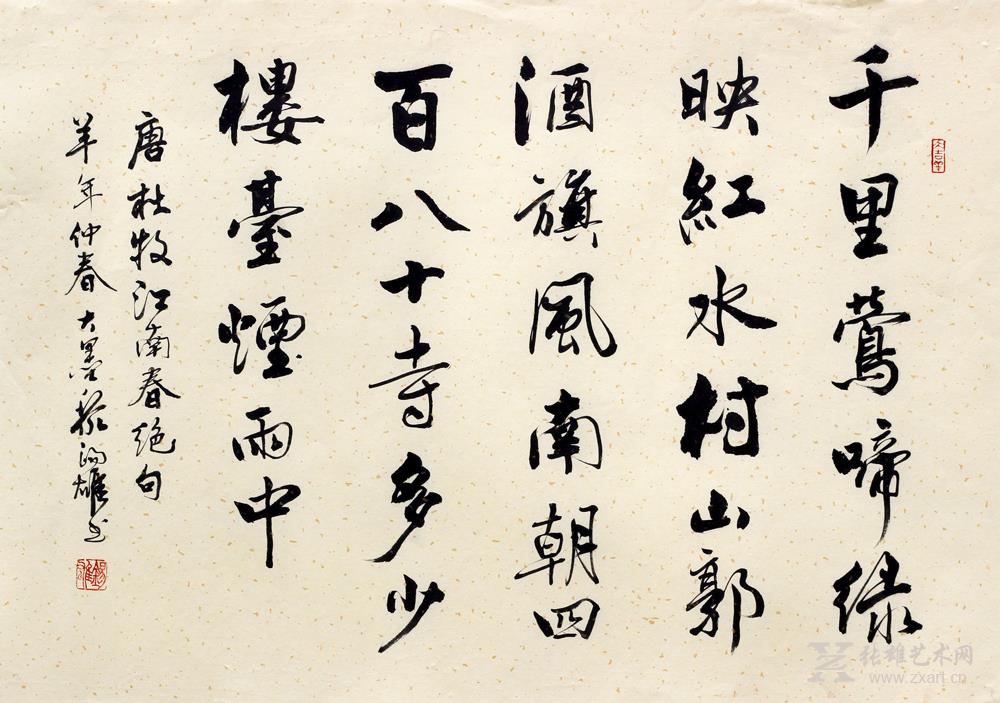 千里鶯啼緑
映紅水村山郭
酒旗風南朝四
百八十寺多少
樓臺煙雨中
唐杜牧江南春绝句
羊年仲春大墨
雄书
张雄艺术网
www.zxart.cn